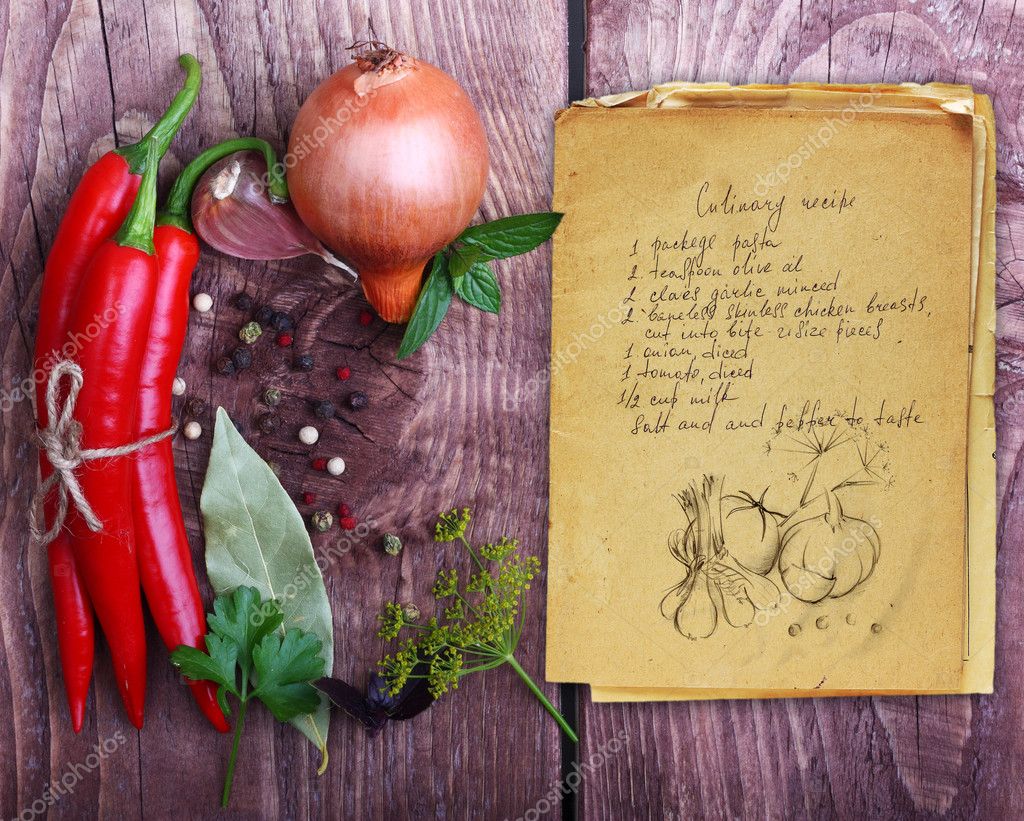 Culinary recipe
1 packege pasta
2 teaspoon olive oil
2 cloves garlic minced
2 boneless skinless chicken breasts,
cut into bite size pieces
1 onion, diced
1 tomato, diced
1/2 cup milk
Salt and and pepper to taste
depositphotos